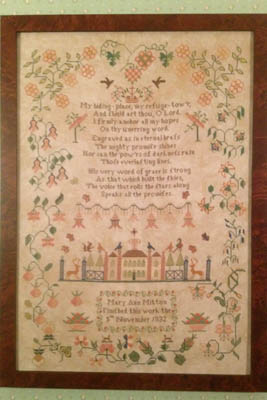 My hiding-place, my refuge, tow'r,
And shield art thou, O Lord,
I firmly anchor all my hopes
On thy unerring word.
Engraved as in eternal brass
The mighty promise shines
Nor can the pow'rs of darkness rase
Those everlasting lines.
His very word of grace is strong
As that which built the skies,
The voice that rolls the stars along
Speaks all the promises.
Mary Ann Mitton
finished this work the
5th November 1832